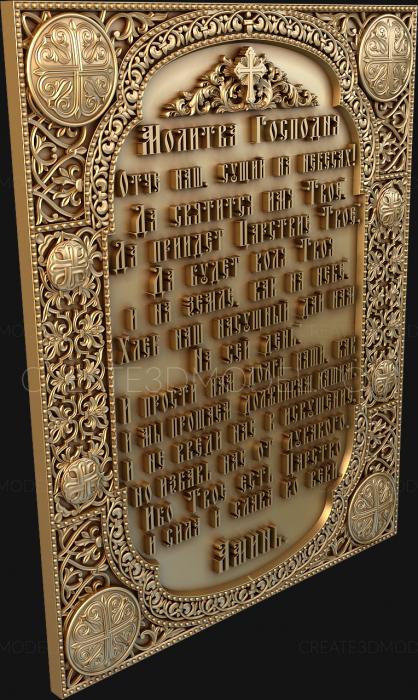 Молитва Господня
Отче наш, сущий на небесах!
Да святится имя Твоё,
Да приидет Царствие Твое,
Да будет воля Твоя
и на земле, как на небе.
Хлеб наш насущный дай нам
На сей день.
И прости нам долги наши, как
и мы прощаем должникам нашим
И не введи нас в искушение,
но избавь нас от лукавого.
Ибо Твое есть Царство
и сила и слава во веки.
Аминь.
CREATE3DMODEL